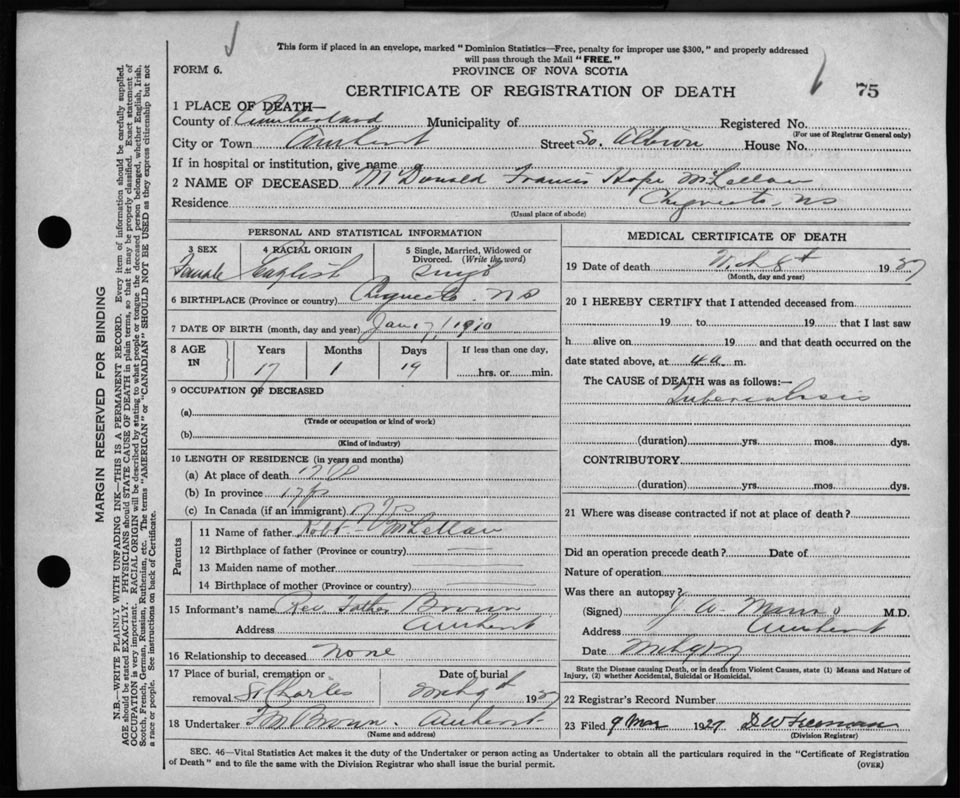 This form if placed in an envelope, marked "Dominion Statistics—Free, penalty for improper use $300," and properly addressed
will pass through the Mail "FREE."
FORM 6.
PROVINCE OF NOVA SCOTIA
CERTIFICATE OF REGISTRATION OF DEATH
75
1 PLACE OF DEATH—
County of Cumberland Municipality of Registered No.
(For use of Registrar General only)
City or Town Amherst Street So. Albion House No.
If in hospital or institution, give name
2 NAME OF DECEASED McDonald Francis Hope McLellan
Residence Chignecto, NS
(Usual place of abode)
PERSONAL AND STATISTICAL INFORMATION
3 SEX 4 RACIAL ORIGIN 5 Single, Married, Widowed or
Divorced. (Write the word)
Female English Single
6 BIRTHPLACE (Province or country) Chignecto NS
7 DATE OF BIRTH (month, day and year) Jan 17, 1910
8 AGE IN Years Months Days If less than one day,
17 1 19 hrs. or min.
9 OCCUPATION OF DECEASED
(a)
(Trade or occupation or kind of work)
(b)
(Kind of industry)
10 LENGTH OF RESIDENCE (in years and months)
(a) At place of death 17
(b) In province 17
(c) In Canada (if an immigrant)
Parents
11 Name of father Robt McLellan
12 Birthplace of father (Province or country)
13 Maiden name of mother
14 Birthplace of mother (Province or country)
15 Informant's name Rev. Father Brown
Address Amherst
16 Relationship to deceased None
17 Place of burial, cremation or Date of burial
removal St Charles 1927
18 Undertaker Brown. Amherst
(Name and address)
MEDICAL CERTIFICATE OF DEATH
19 Date of death 1927
(Month, day and year)
20 I HEREBY CERTIFY that I attended deceased from
19 to 19 that I last saw
h alive on 19 and that death occurred on the
date stated above, at 4 a. m.
The CAUSE of DEATH was as follows:—
Tuberculosis
(duration) yrs. mos. dys.
CONTRIBUTORY
(duration) yrs. mos. dys.
21 Where was disease contracted if not at place of death?
Did an operation precede death? Date of
Nature of operation
Was there an autopsy?
(Signed) J A M.D.
Address Amherst
Date
State the Disease causing Death, or in death from Violent Causes, state (1) Means and Nature of
Injury, (2) whether Accidental, Suicidal or Homicidal.
22 Registrar's Record Number
23 Filed 9 Mar 1927 D W Freeman
(Division Registrar)
SEC. 46—Vital Statistics Act makes it the duty of the Undertaker or person acting as Undertaker to obtain all the particulars required in the "Certificate of Registration
of Death" and to file the same with the Division Registrar who shall issue the burial permit. (OVER)
MARGIN RESERVED FOR BINDING
N.B.—WRITE PLAINLY WITH UNFADING INK—THIS IS A PERMANENT RECORD. Every item of information should be carefully supplied.
AGE should be stated EXACTLY. PHYSICIANS should STATE CAUSE OF DEATH in plain terms, so that it may be properly classified. Exact statement of
OCCUPATION is very important. RACIAL ORIGIN will be described by stating to what people or tongue the deceased person belonged, whether English, Irish,
Scotch, French, German, Russian, Ruthenian, etc. The terms "AMERICAN" or "CANADIAN" SHOULD NOT BE USED as they express citizenship but not
a race or people. See instructions on back of Certificate.